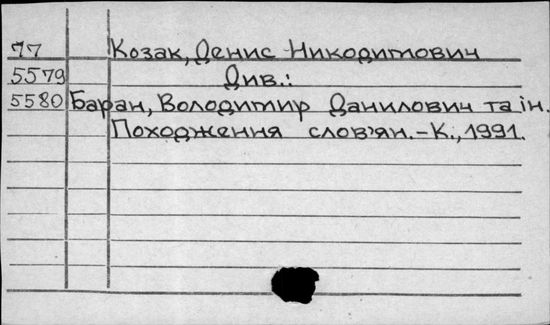 77 Козак, Денис Никодимович
5579 Див.:
5580 Баран, Володимир Данилович та ін.
Походження слов'ян.-К., 1991.